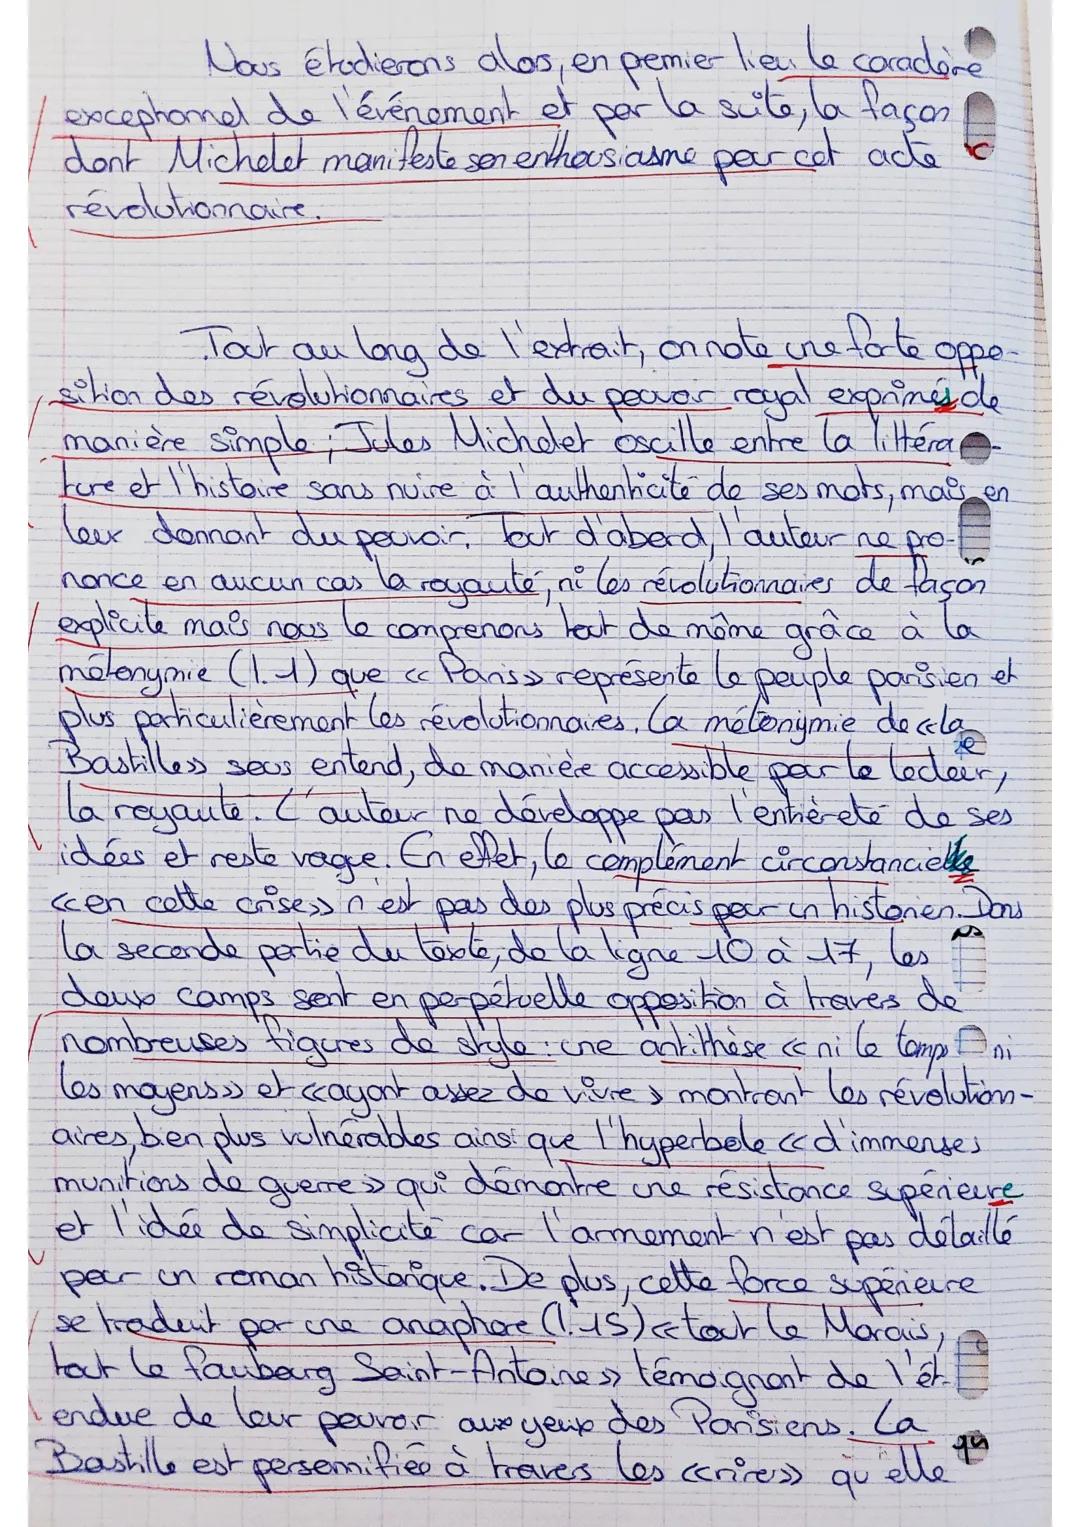 Nous étudierons alors, en premier lieu le caractère
exceptionnel de l'événement et par la suite, la façon
dont Michelet manifeste son enthousiasme pour cet acte
révolutionnaire.
Tout au long de l'extrait, on note une forte oppo-
sition des révolutionnaires et du pouvoir royal exprimés de
manière simple ; Jules Michelet oscille entre la littéra-
ture et l'histoire sans nuire à l'authenticité de ses mots, mais en
leur donnant du pouvoir. Tout d'abord, l'auteur ne pro-
nonce en aucun cas la royauté, ni les révolutionnaires de façon
explicite mais nous le comprenons tout de même grâce à la
métonymie (l.1) que « Paris » représente le peuple parisien et
plus particulièrement les révolutionnaires. La métonymie de « la
Bastille » sous entend, de manière accessible pour le lecteur,
la royauté. L'auteur ne développe pas l'entièreté de ses
idées et reste vague. En effet, le complément circonstanciel
« en cette crise » n'est pas des plus précis pour un historien. Dans
la seconde partie du texte, de la ligne 10 à 17, les
deux camps sont en perpétuelle opposition à travers de
nombreuses figures de style : une antithèse « ni le temps ni
les moyens » et « ayant assez de vivre » montrant les révolution-
aires, bien plus vulnérables ainsi que l'hyperbole « d'immenses
munitions de guerre » qui démontre une résistance supérieure
et l'idée de simplicité car l'armement n'est pas détaillé
pour un roman historique. De plus, cette force supérieure
se traduit par une anaphore (l.15) « tout le Marais,
tout le faubourg Saint-Antoine » témoignant de l'ét-
endue de leur pouvoir aux yeux des Parisiens. La
Bastille est personnifiée à travers les « rires » qu'elle